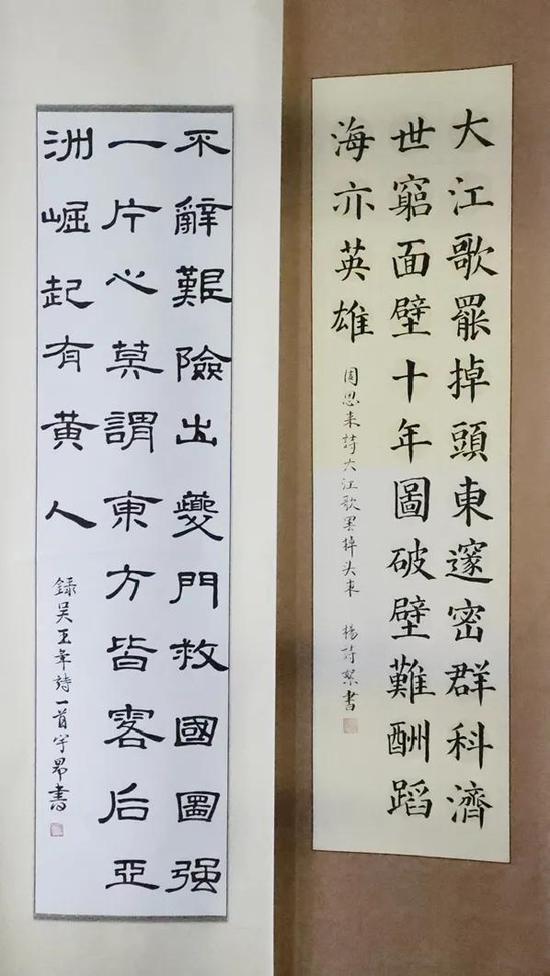 大江歌罷掉頭東邃密群科濟
世窮面壁十年圖破壁難酬蹈
海亦英雄
周恩来詩大江歌罢掉头東 楊詩書
不辭艱險出夔門救國圖强
一片心莫謂東方皆客后亞
洲崛起有黄人
録吴玉章詩一首宇昂書